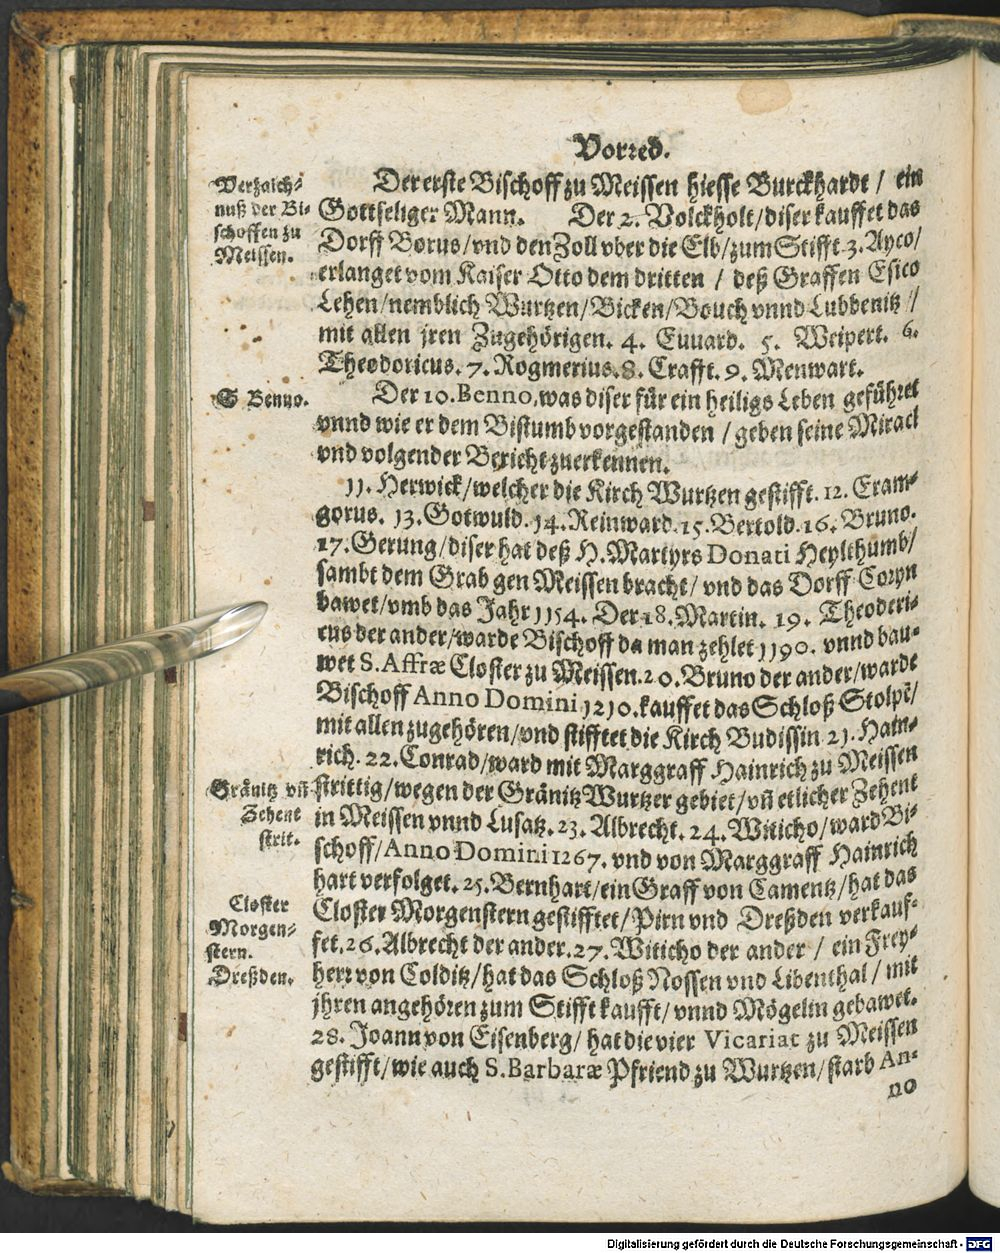 Vorred.
Verzaich-
nuß der Bi-
schoffen zu
Meissen.
Der erste Bischoff zu Meissen hiesse Burckhardt / ein
Gottseliger Mann. Der 2. Volckholt / diser kauffet das
Dorff Borus / vnd den Zoll vber die Elb / zum Stifft. 3. Ayco /
erlanget vom Kaiser Otto dem dritten / deß Graffen Esico
Lehen / nemblich Wurtzen / Bicken / Bouch vnnd Lubbenitz /
mit allen jren Zugehörigen. 4. Euuard. 5. Weipert. 6.
Theodoricus. 7. Rogmerius. 8. Crafft. 9. Menwart.
S Benno.
Der 10. Benno, was diser für ein heiligs Leben geführet
vnnd wie er dem Bistumb vorgestanden / geben seine Miracl
vnd volgender Bericht zuerkennen.
11. Herwick / welcher die Kirch Wurtzen gestifft. 12. Eram-
gorus. 13. Gotwuld. 14. Reinward. 15. Bertold. 16. Bruno.
17. Gerung / diser hat deß H. Martyrs Donati Heylthumb /
sambt dem Grab gen Meissen bracht / vnd das Dorff Coryn
bawet / vmb das Jahr 1154. Der 18. Martin. 19. Theoderi-
cus der ander / warde Bischoff da man zehlet 1190. vnnd bau-
wet S. Affræ Closter zu Meissen. 20. Bruno der ander / warde
Bischoff Anno Domini 1210. kauffet das Schloß Stolpẽ /
mit allen zugehören / vnd stifftet die Kirch Budissin 21. Hain-
rich. 22. Conrad / ward mit Marggraff Hainrich zu Meissen
Gränitz vñ
Zehent
strit.
strittig / wegen der Gränitz Wurtzer gebiet / vñ etlicher Zehent
in Meissen vnnd Lusatz. 23. Albrecht. 24. Witicho / ward Bi-
schoff / Anno Domini 1267. vnd von Marggraff Hainrich
hart verfolget. 25. Bernhart / ein Graff von Camentz / hat das
Closter
Morgen-
stern.
Dreßden.
Closter Morgenstern gestifftet / Pirn vnd Dreßden verkauf-
fet. 26. Albrecht der ander. 27. Witicho der ander / ein Frey-
herr von Colditz / hat das Schloß Nossen vnd Libenthal / mit
jhren angehören zum Stifft kaufft / vnnd Mögelin gebawet.
28. Joann von Eisenberg / hat die vier Vicariat zu Meissen
gestifft / wie auch S. Barbaræ Pfriend zu Wurtzen / starb An-
no
Digitalisierung gefördert durch die Deutsche Forschungsgemeinschaft - DFG